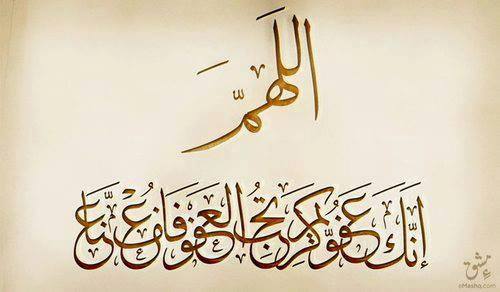 اللهمَّ
إنَّكَ عَفُوٌّ كريمٌ تحبُّ العفوَ فاعْفُ عنَّا
إمشق
eMashq.com